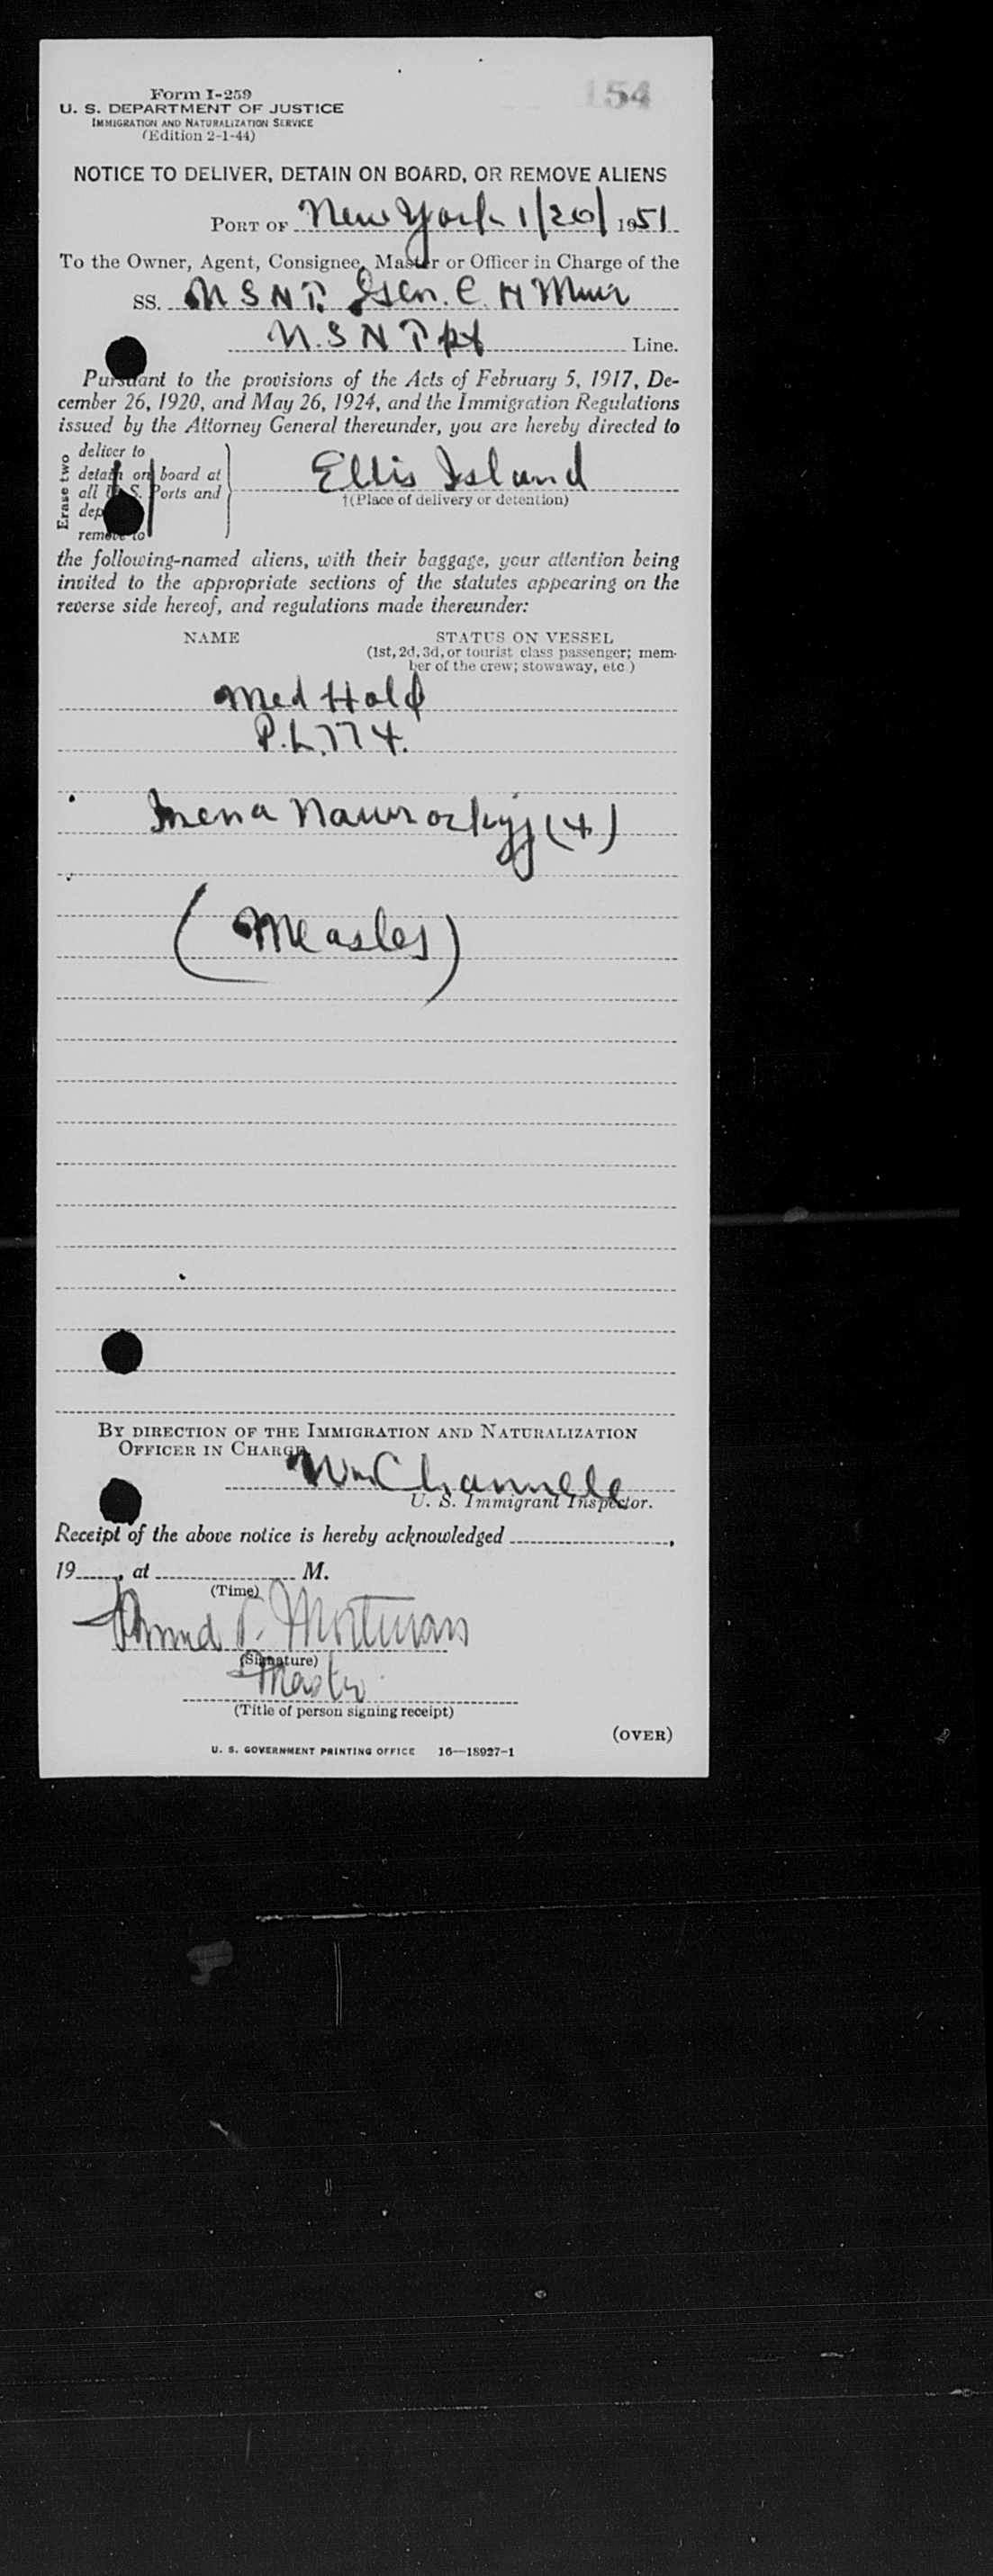 154
Form I-259
U. S. DEPARTMENT OF JUSTICE
IMMIGRATION AND NATURALIZATION SERVICE
(Edition 2-1-44)
NOTICE TO DELIVER, DETAIN ON BOARD, OR REMOVE ALIENS
PORT OF New York 1/20/ 1951
To the Owner, Agent, Consignee, Master or Officer in Charge of the
SS. Gen. C. H Muir
Line.
Pursuant to the provisions of the Acts of February 5, 1917, De-
cember 26, 1920, and May 26, 1924, and the Immigration Regulations
issued by the Attorney General thereunder, you are hereby directed to
Erase two
deliver to
detain on board at
all U. S. Ports and
remove to
Ellis Island
†(Place of delivery or detention)
the following-named aliens, with their baggage, your attention being
invited to the appropriate sections of the statutes appearing on the
reverse side hereof, and regulations made thereunder:
NAME
STATUS ON VESSEL
(1st, 2d, 3d, or tourist class passenger; mem-
ber of the crew; stowaway, etc.)
Med Hold
P.L. 774.
Irena (4)
(Measles)
BY DIRECTION OF THE IMMIGRATION AND NATURALIZATION
OFFICER IN CHARGE
Wm Channell
U. S. Immigrant Inspector.
Receipt of the above notice is hereby acknowledged ,
19 , at M.
(Time)
(Signature)
Master
(Title of person signing receipt)
(OVER)
U. S. GOVERNMENT PRINTING OFFICE 16—18927-1